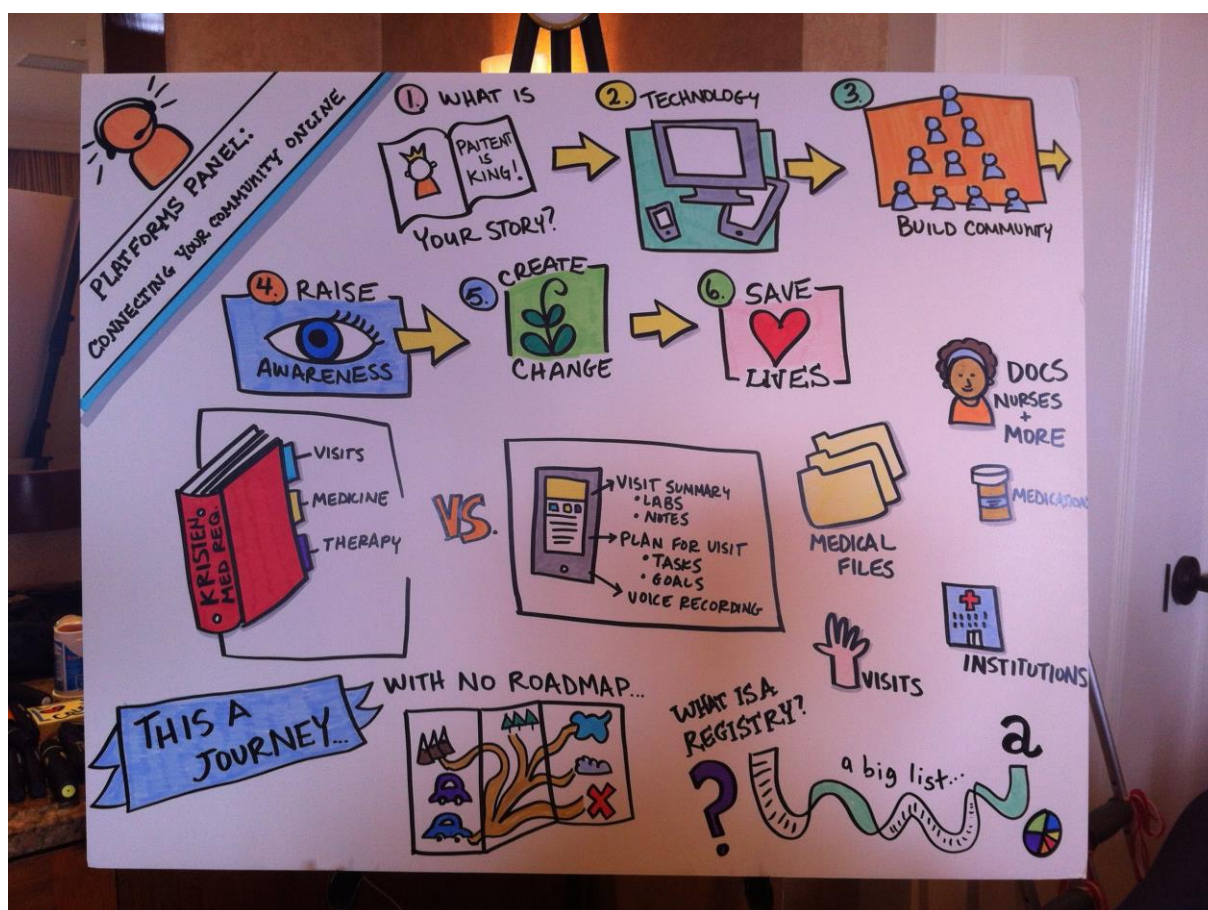 PLATFORMS PANEL:
CONNECTING YOUR COMMUNITY ONLINE
1. WHAT IS
PAITENT
IS
KING!
YOUR STORY?
2. TECHNOLOGY
3.
BUILD COMMUNITY
4. RAISE
AWARENESS
5. CREATE
CHANGE
6. SAVE
LIVES
DOCS
NURSES
+
MORE
KRISTEN.
MED REQ.
VISITS
MEDICINE
THERAPY
VS.
VISIT SUMMARY
• LABS
• NOTES
PLAN FOR VISIT
• TASKS
• GOALS
VOICE RECORDING
MEDICAL
FILES
MEDICATIONS
VISITS
INSTITUTIONS
THIS A
JOURNEY...
WITH NO ROADMAP...
WHAT IS A
REGISTRY?
?
a big list...
a